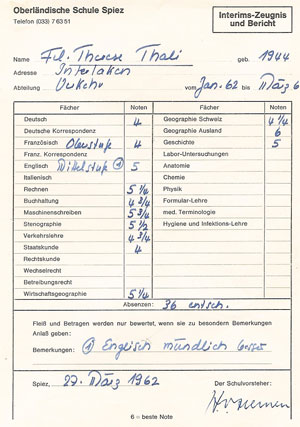 Oberländische Schule Spiez
Telefon (033) 7 63 51
Interims-Zeugnis
und Bericht
Name Frl. Therese Thali geb. 1944
Adresse Interlaken
Abteilung Verkehr vom Jan. 62 bis März 6
Fächer Noten Fächer Noten
Deutsch 4 Geographie Schweiz 4 1/4
Deutsche Korrespondenz Geographie Ausland 6
Französisch Oberstufe 4 Geschichte 5
Franz. Korrespondenz Labor-Untersuchungen
Englisch Mittelstufe ① 5 Anatomie
Italienisch Chemie
Rechnen 5 1/4 Physik
Buchhaltung 4 3/4 Formular-Lehre
Maschinenschreiben 5 3/4 med. Terminologie
Stenographie 5 1/2 Hygiene und Infektions-Lehre
Verkehrslehre 4 3/4
Staatskunde 4
Rechtskunde
Wechselrecht
Betreibungsrecht
Wirtschaftsgeographie 5 1/4
Absenzen: 36 entsch.
Fleiß und Betragen werden nur bewertet, wenn sie zu besondern Bemerkungen
Anlaß geben:
Bemerkungen: ① Englisch mündlich besser
Spiez, 29. März 1962 Der Schulvorsteher:
6 = beste Note